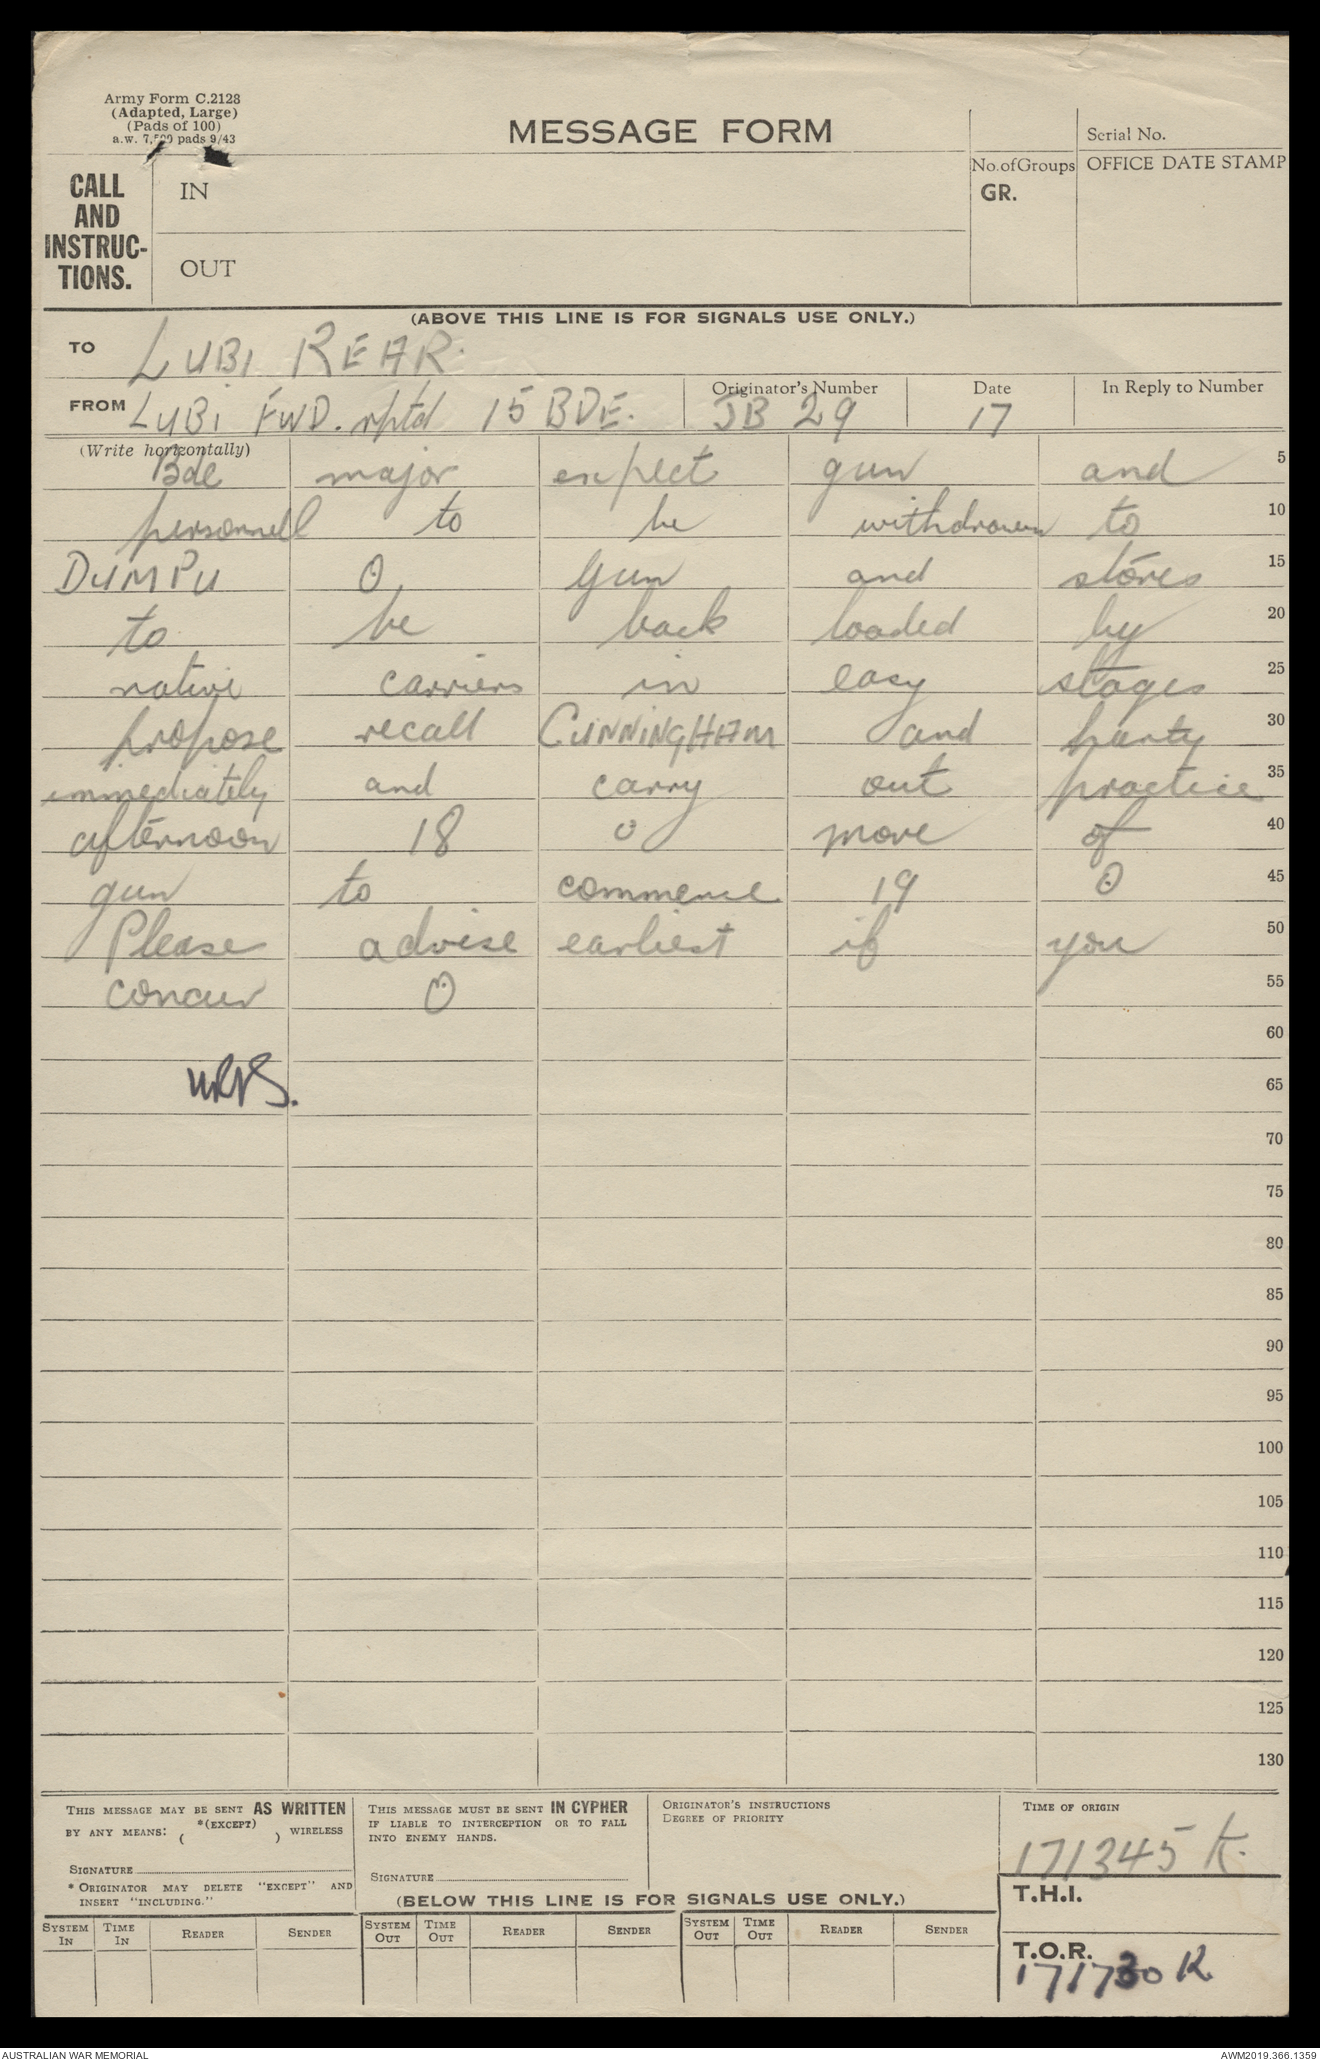 Army Form C.2128
(Adapted, Large)
(Pads of 100)
a.w. 7,500 pads 9/43
MESSAGE FORM
Serial No.
No. of Groups
GR.
OFFICE DATE STAMP
CALL
AND
INSTRUC-
TIONS.
IN
OUT
(ABOVE THIS LINE IS FOR SIGNALS USE ONLY.)
TO LUBI REAR.
FROM LUBI FWD. rptd 15 BDE.
Originator's Number JB 29
Date 17
In Reply to Number
(Write horizontally)
Bde major expect gun and 5
personnell to be withdrawn to 10
DUMPU O gun and stores 15
to be back loaded by 20
native carriers in easy stages 25
propose recall CUNNINGHAM and party 30
immediately and carry out practice 35
afternoon 18 O move of 40
gun to commence 19 O 45
Please advise earliest if you 50
concur O 55
60
WRNS. 65
70
75
80
85
90
95
100
105
110
115
120
125
130
THIS MESSAGE MAY BE SENT AS WRITTEN
BY ANY MEANS: *(EXCEPT) ( ) WIRELESS
SIGNATURE
* ORIGINATOR MAY DELETE "EXCEPT" AND
INSERT "INCLUDING."
THIS MESSAGE MUST BE SENT IN CYPHER
IF LIABLE TO INTERCEPTION OR TO FALL
INTO ENEMY HANDS.
SIGNATURE
ORIGINATOR'S INSTRUCTIONS
DEGREE OF PRIORITY
TIME OF ORIGIN
171345 K.
(BELOW THIS LINE IS FOR SIGNALS USE ONLY.)
T.H.I.
SYSTEM IN TIME IN READER SENDER SYSTEM OUT TIME OUT READER SENDER SYSTEM OUT TIME OUT READER SENDER
T.O.R.
171730 K
AUSTRALIAN WAR MEMORIAL
AWM2019.366.1359